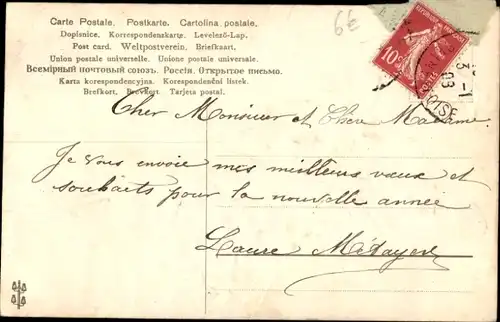 Carte Postale. Postkarte. Cartolina postale.
Dopisnice. Korrespondenskarte. Levelező-Lap.
Post card. Weltpostverein. Briefkaart.
Union postale universelle. Unione postale universale.
Всемірный почтовый союзъ. Россія. Открытое письмо.
Karta korespondencyjna. Korespondenční lístek.
Brefkort. Brevkort. Tarjeta postal.
6E
10c
POSTES
3 -1
08
OISE
Cher Monsieur et Chère Madame
Je vous envoie mes meilleurs vœux et
souhaits pour la nouvelle année
Laure Métayer